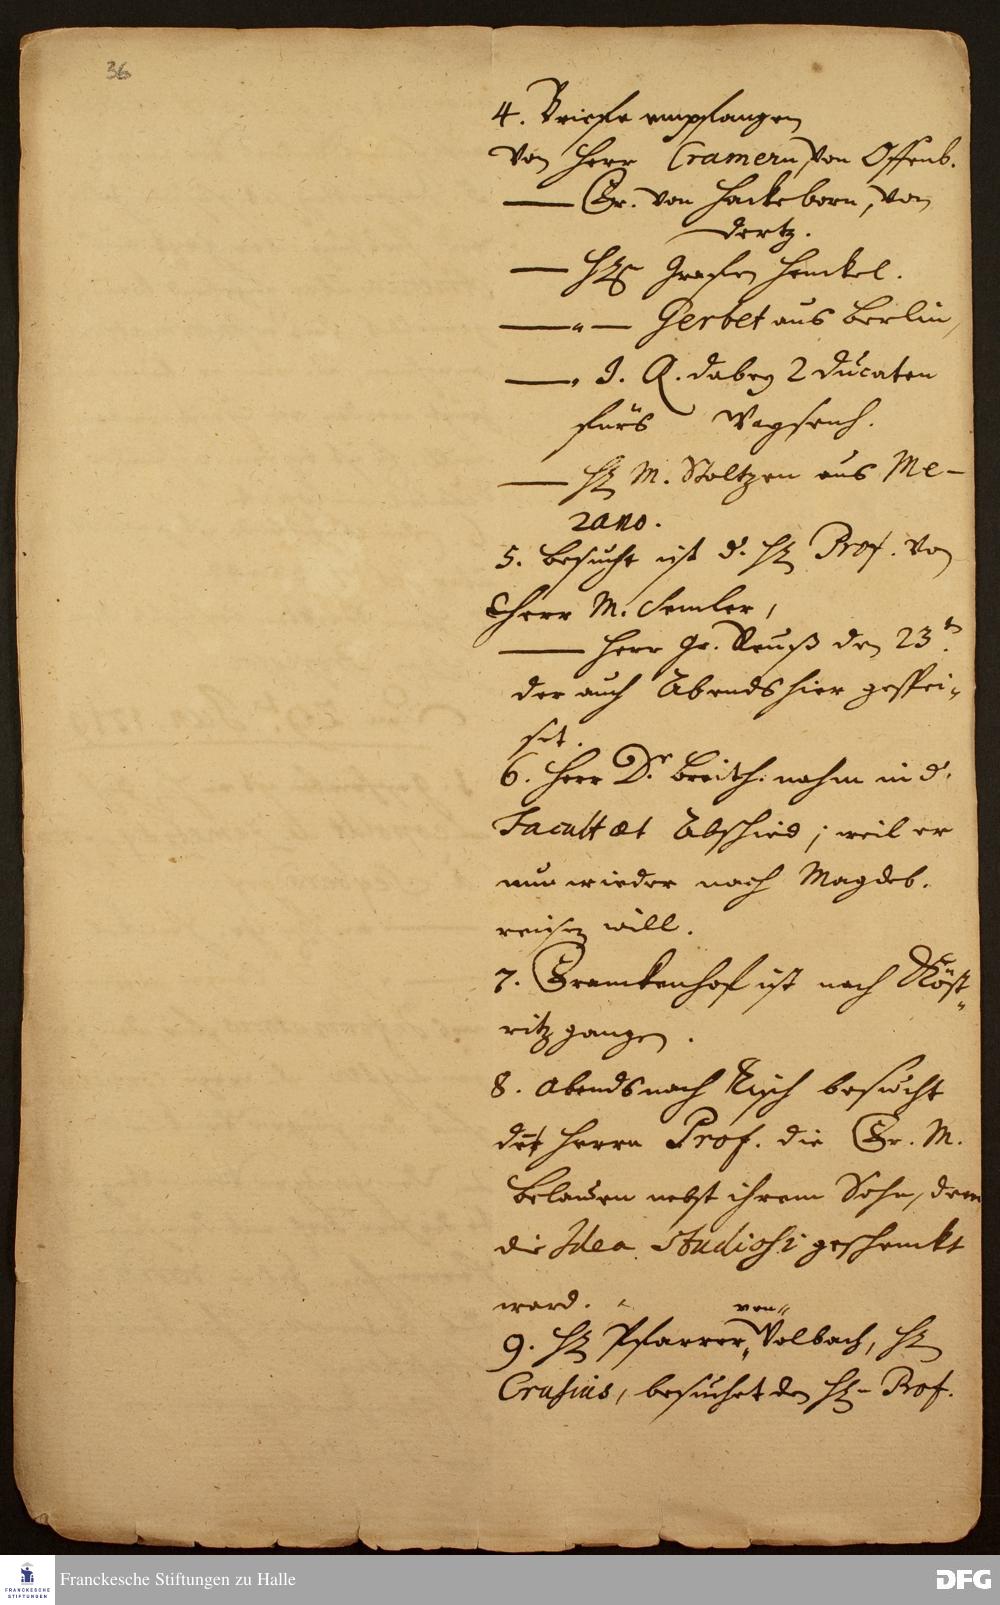 36
4. Briefe empfangen
von Herr Cramern, von Offenb.
— Fr. von Hackeborn, von
Dertz.
— HE Grafen Henckel.
— " — Gerbet aus Berlin,
— " J. A. dabey 2 Ducaten
fürs Waysenh.
— HE M. Stoltzen aus Me-
rano.
5. besucht ist d. HE Prof. von
Herr M. Semler,
— Herr Gr. Reuß den 23t.
der auch Abends hier gespei-
set.
6. Herr Dr. Breith. nahm in d.
Facultæt Abschied; weil er
nun wieder nach Magdeb.
reisen will.
7. Franckenhof ist nach Köst-
ritz gangen.
8. Abends nach Tisch besucht
den Herrn Prof. die Fr. M.
Belauen nebst ihrem Sohn, dem
die Idea Studiosi geschenckt
ward.
9. HE Pfarrer von Volbach, HE
Crusius, besuchet den HE Prof.
Franckesche Stiftungen zu Halle
FRANCKESCHE
STIFTUNGEN
DFG